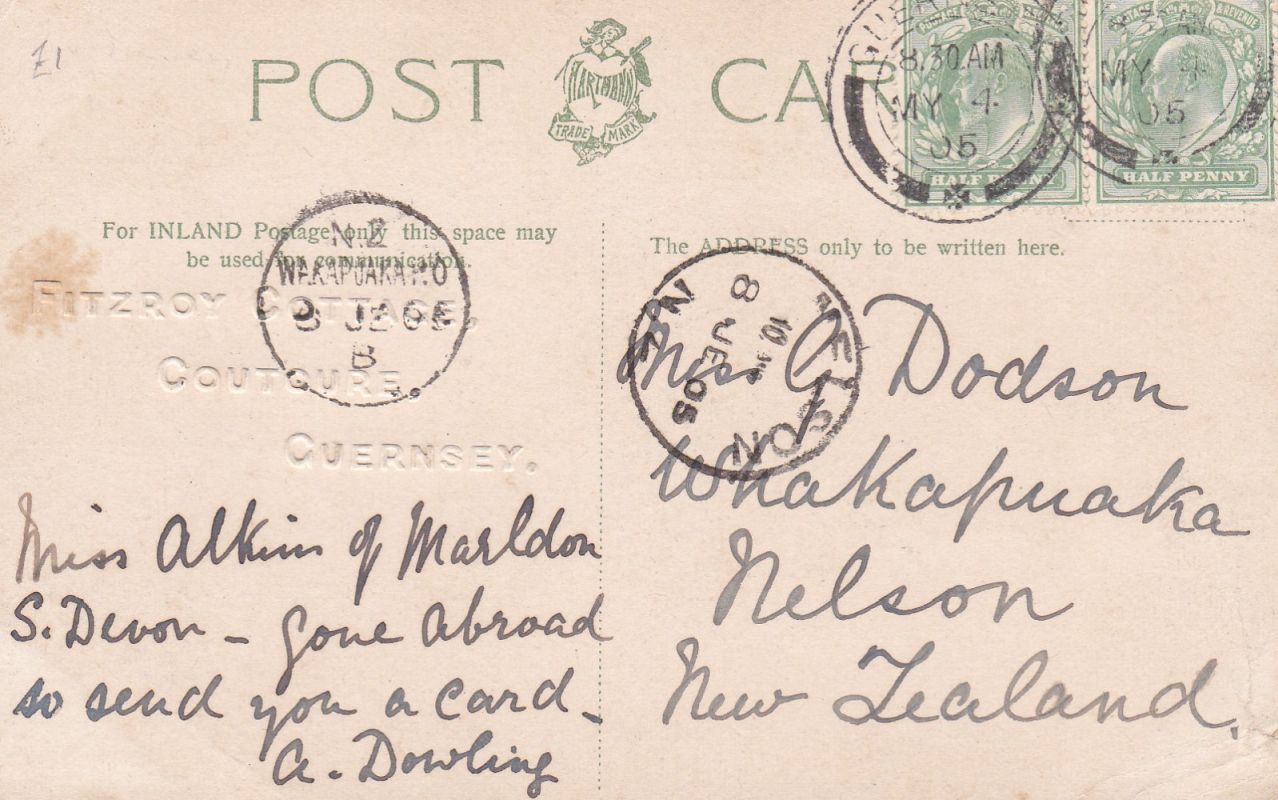 £1
POST CAR
HARTMANN
TRADE MARK
GUER
8.30 AM
MY 4
05
30 AM
MY 4
05
POSTAGE & REVENUE
HALF PENNY
& REVENUE
HALF PENNY
For INLAND Postage only this space may
be used for communication.
The ADDRESS only to be written here.
N.Z
WAKAPUAKA P.O
8 JE 05
B
FITZROY COTTAGE,
COUTOURE,
GUERNSEY.
NELSON
N.Z
8
JE 05
Miss Alkin of Marldon
S. Devon - gone abroad
so send you a card -
A. Dowling
Miss C. Dodson
Whakapuaka
Nelson
New Zealand.